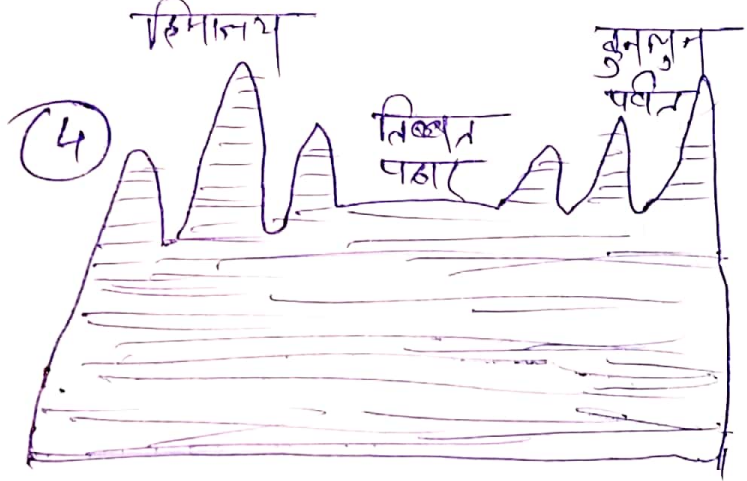 हिमालय
कुनलुन
पर्वत
तिब्बत
पठार
4